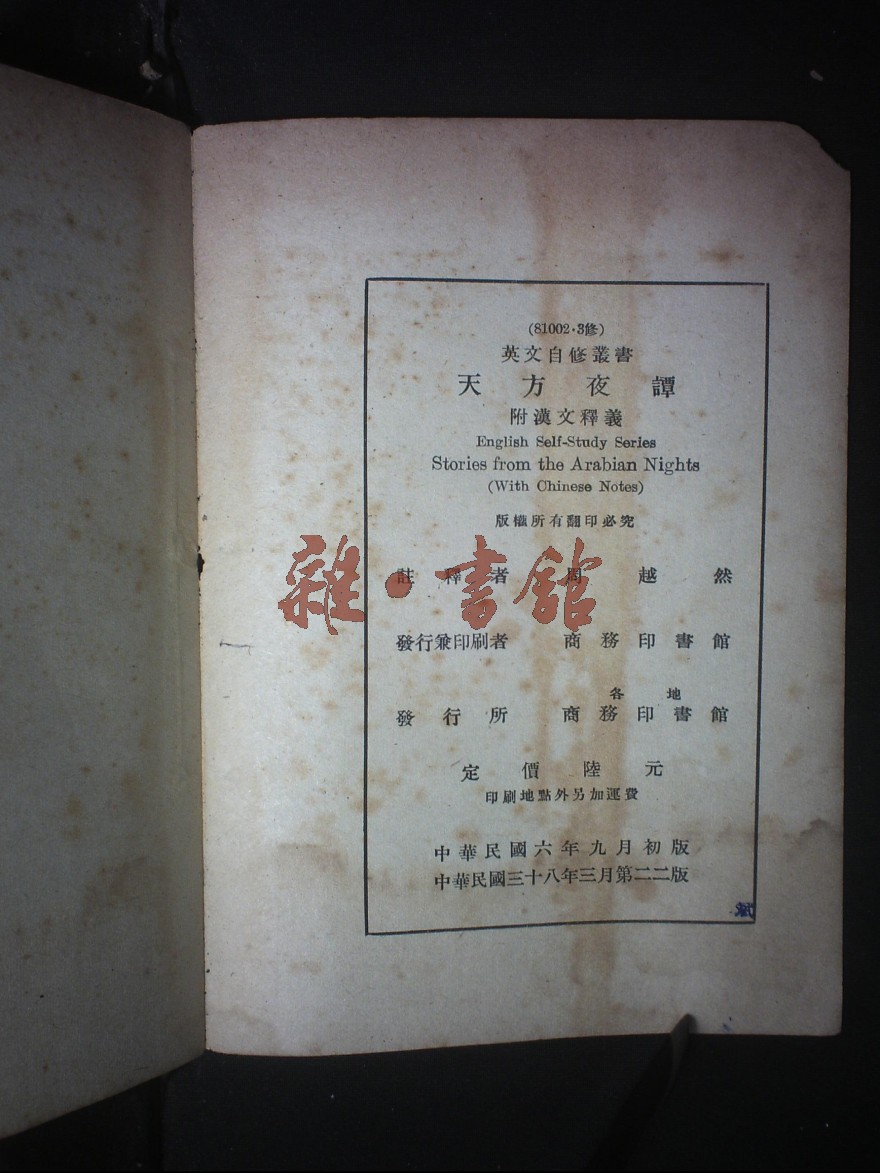 (81002·3修)
英文自修叢書
天方夜譚
附漢文釋義
English Self-Study Series
Stories from the Arabian Nights
(With Chinese Notes)
版權所有翻印必究
註釋者 周越然
雜·書館
發行兼印刷者 商務印書館
各地
發行所 商務印書館
定價陸元
印刷地點外另加運費
中華民國六年九月初版
中華民國三十八年三月第二二版